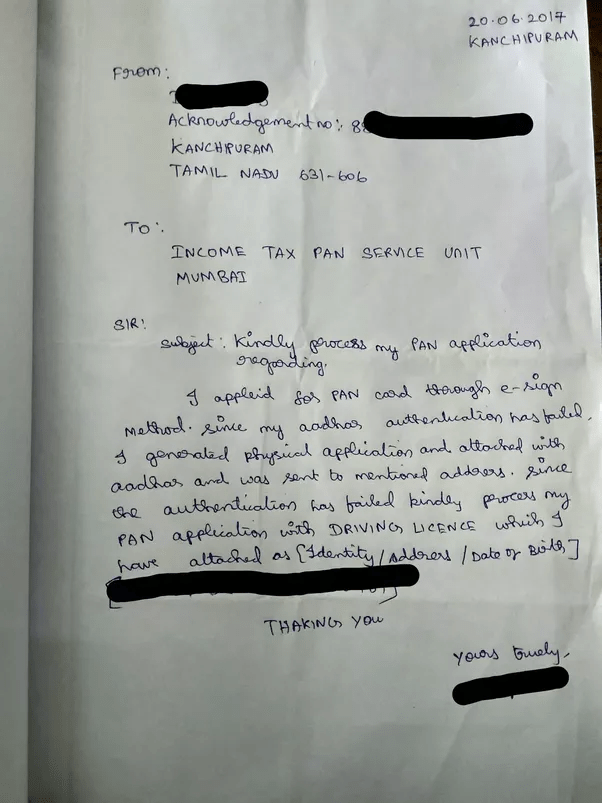 20.06.2017
KANCHIPURAM
From:
Acknowledgement no: 88
KANCHIPURAM
TAMIL NADU 631-606
To:
INCOME TAX PAN SERVICE UNIT
MUMBAI
SIR:
Subject: Kindly process my PAN application
regarding.
I appleid for PAN card through e-sign
Method. Since my aadhar authentication has failed.
I generated physical application and attached with
aadhar and was sent to mentioned address. Since
the authentication has failed kindly process my
PAN application with DRIVING LICENCE which I
have attached as [Identity/Address/Date of Birth]
THAKING YOU
Yours truely,